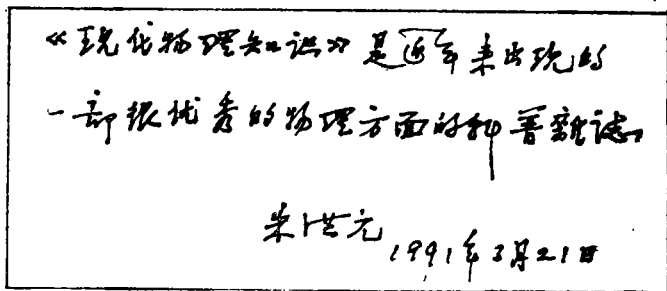 《现代物理知识》是近年来出现的
一部很优秀的物理方面的科普雜誌
朱洪元 1991年3月21日